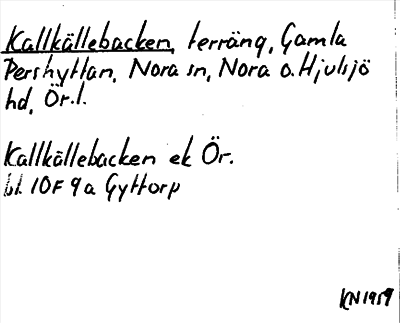 Kallkällebacken, terräng, Gamla
Pershyttan, Nora sn, Nora o. Hjulsjö
hd, Ör.l.
Kallkällebacken ek Ör.
bl. 10F 9a Gyttorp
KN 1959